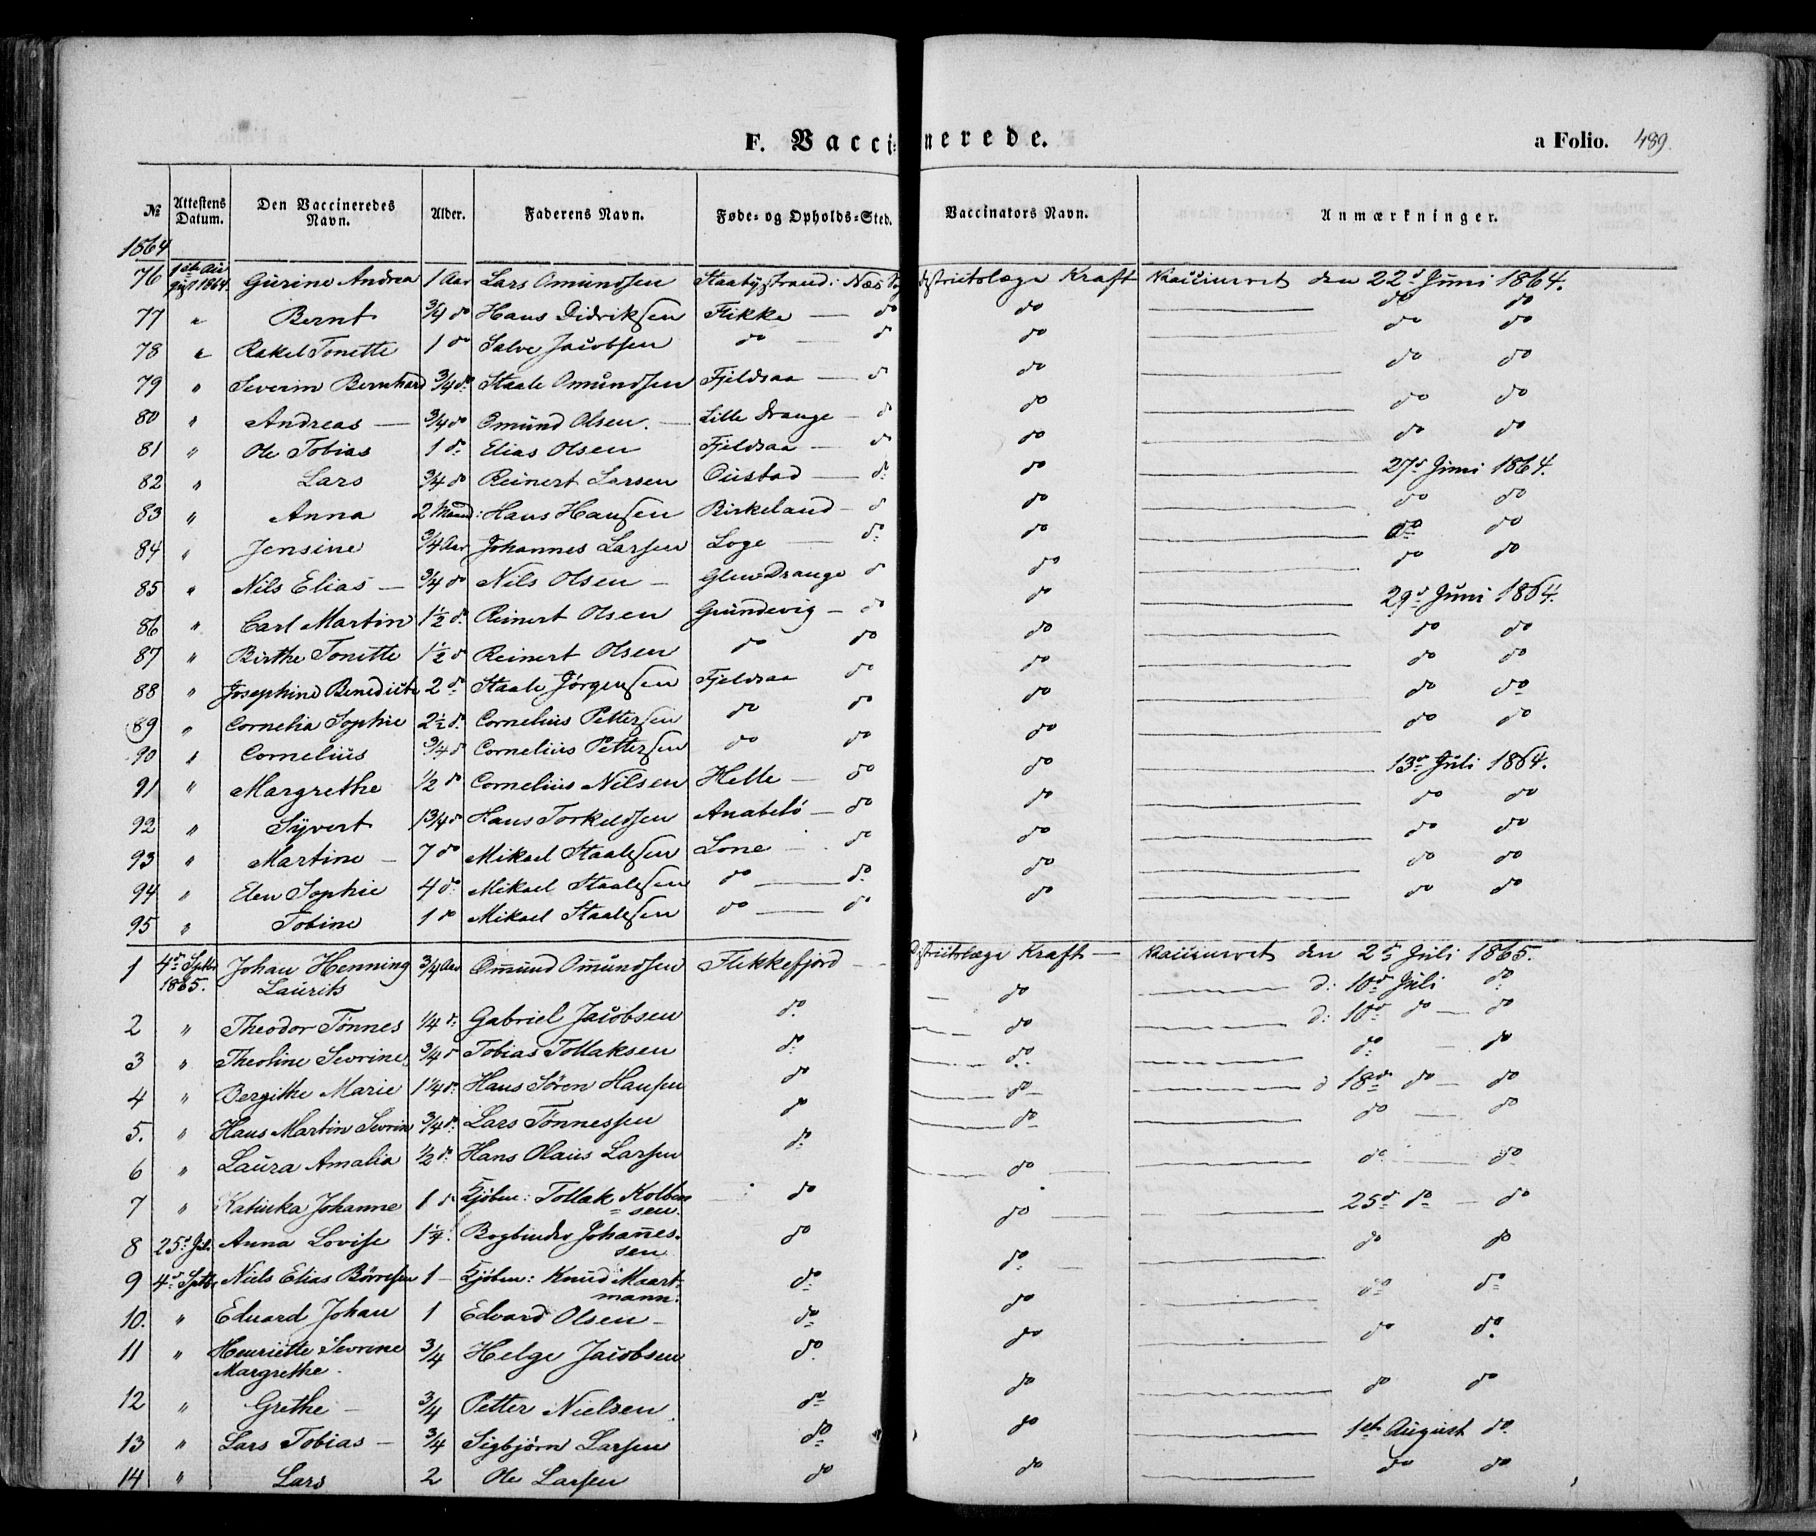 F. Vaccinerede.
a Folio. 489.
№ Attestens Datum. Den Vaccineredes Navn. Alder. Faderens Navn. Føde- og Opholds-Sted. Vaccinators Navn. Anmærkninger.
1864
76 1ste August 1864 Gurine Andrea 1 Aar Lars Omundsen Næs Districtslæge Kraft Vaccineret den 22d Juni 1864.
77 " Bernt 3/4 do Hans Didriksen Flikke — do do do do
78 " Rakel Tonette 1 do Salve Jacobsen do — do do do do
79 " Severin Bernhard 3/4 do Staale Omundsen Fjeldsaa — do do do do
80 " Andreas — 3/4 do Omund Olsen. — Lille Drange — do do do do
81 " Ole Tobias 1 do Elias Olsen Fjeldsaa — do do do do
82 " Lars 3/4 do Reinert Larsen — do do 27d Juni 1864.
83 " Anna 2 Maand: Hans Hansen Birkeland — do do do do
84 " Jensine 3/4 Aar Johannes Larsen Loge — do do do do
85 " Nils Elias — 3/4 do Nils Olsen — Drange do do do do
86 " Carl Martin 1 1/2 do Reinert Olsen Grundevig — do do 29d Juni 1864.
87 " Birthe Tonette 1 1/2 do Reinert Olsen do do do do do
88 " Josephine Benedicte 2 do Staale Jørgensen Fjeldsaa do do do do
89 " Cornelia Sophie 2 1/2 do Cornelius Pettersen do do do do do
90 " Cornelius 3/4 do Cornelius Pettersen do do do do do
91 " Margrethe 1/2 do Cornelius Nilsen Helle — do do 13de Juli 1864.
92 " Syvert 1 3/4 do Hans Torkeldsen Anabelø — do do do do
93 " Martine — 7 do Mikael Staalesen Lone — do do do do
94 " Elen Sophie 4 do Mikael Staalesen do — do do do do
95 " Tobine 1 do Mikael Staalesen do — do do do do
1 4d Septbr 1865. Johan Henning Laurits 3/4 Aar Omund Omundsen Flekkefjord — Districtslæge Kraft — Vaccineret den 2d Juli 1865.
2 " Theodor Tønnes 1/4 do Gabriel Jacobsen do do d: 10d Juli do
3 " Theoline Sevrine 3/4 do Tobias Tollaksen do do d: 10d do — do
4 " Bergithe Marie 1 1/4 do Hans Søren Hansen do do do do
5. " Hans Martin Sevrin 3/4 do Lars Tønnessen do do d 18de do — do
6 " Laura Amalia 1/2 do Hans Olaus Larsen do do do — do
7 " Katinka Johanne 1 do Kjøbm: Tollak Kolbensen. do do do do
8 25d Jul. Anna Lovise 1 1/4. Bogbinder Johannessen do do 25d do — do
9 4d Septbr Niels Elias Børresen 1 — Kjøbm: Knud Maartmann. do do do do
10. " Eduard Johan 1 Edvard Olsen — do do do do
11 " Henriette Sevrine Margrethe. 3/4 Helge Jacobsen do do do do
12 " Grethe — 3/4 Petter Nielsen do do do do
13 " Lars Tobias — 3/4 Sigbjørn Larsen do do 1ste August do
14 " Lars 2 Ole Larsen do do do do